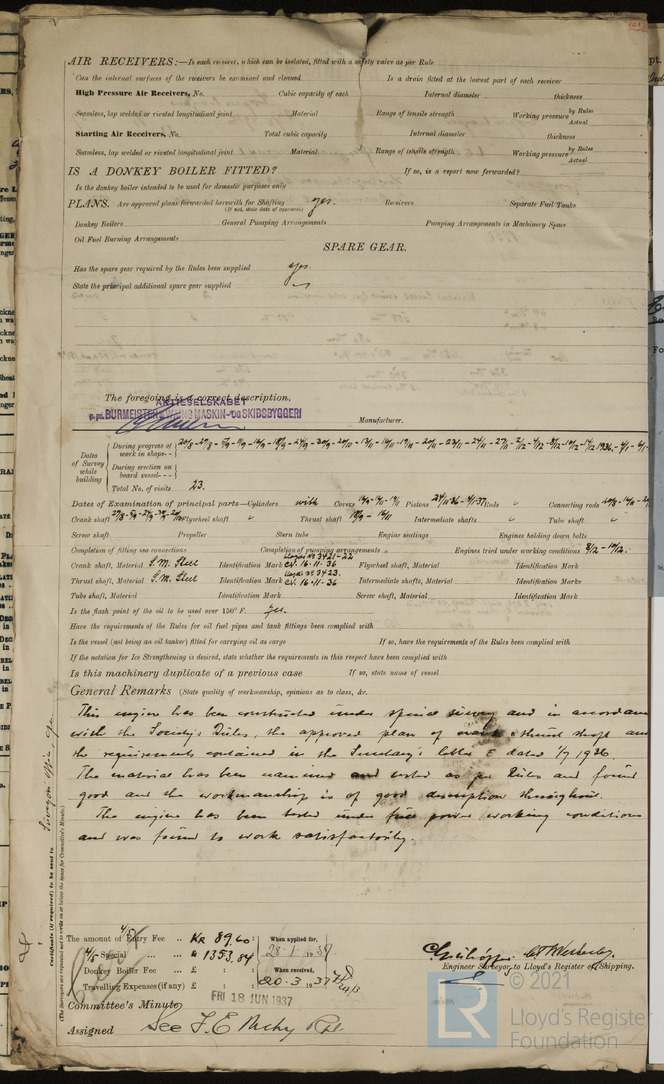 AIR RECEIVERS:—Is each receiver, which can be isolated, fitted with a safety valve as per Rule
Can the internal surfaces of the receivers be examined and cleaned Is a drain fitted at the lowest part of each receiver
High Pressure Air Receivers, No. Cubic capacity of each Internal diameter thickness
Seamless, lap welded or riveted longitudinal joint Material Range of tensile strength Working pressure by Rules Actual
Starting Air Receivers, No. Total cubic capacity Internal diameter thickness
Seamless, lap welded or riveted longitudinal joint Material Range of tensile strength Working pressure by Rules Actual
IS A DONKEY BOILER FITTED? If so, is a report now forwarded?
Is the donkey boiler intended to be used for domestic purposes only
PLANS. Are approved plans forwarded herewith for Shafting yes. Receivers Separate Fuel Tanks
(If not, state date of approval)
Donkey Boilers General Pumping Arrangements Pumping Arrangements in Machinery Space
Oil Fuel Burning Arrangements
SPARE GEAR.
Has the spare gear required by the Rules been supplied yes.
State the principal additional spare gear supplied
The foregoing is a correct description,
AKTIESELSKABET
p.pa. BURMEISTER & WAINS MASKIN- OG SKIBSBYGGERI
Manufacturer.
Dates of Survey while building
During progress of work in shops - -
During erection on board vessel - - -
Total No. of visits 23.
Dates of Examination of principal parts—Cylinders with Covers Pistons 24/11 36 - 4/1-37 Rods " Connecting rods
Crank shaft Flywheel shaft " Thrust shaft Intermediate shafts " Tube shaft "
Screw shaft Propeller Stern tube Engine seatings Engines holding down bolts
Completion of fitting sea connections Completion of pumping arrangements " Engines tried under working conditions 9/12 - 10/12.
Crank shaft, Material S.M. Steel Identification Mark Lloyds No 3421-22 CV. 16-11-36 Flywheel shaft, Material Identification Mark
Thrust shaft, Material S.M. Steel Identification Mark Lloyds No 3423. CV. 16-11-36 Intermediate shafts, Material Identification Marks
Tube shaft, Material Identification Mark Screw shaft, Material Identification Mark
Is the flash point of the oil to be used over 150° F. yes.
Have the requirements of the Rules for oil fuel pipes and tank fittings been complied with
Is the vessel (not being an oil tanker) fitted for carrying oil as cargo If so, have the requirements of the Rules been complied with
If the notation for Ice Strengthening is desired, state whether the requirements in this respect have been complied with
Is this machinery duplicate of a previous case If so, state name of vessel
General Remarks (State quality of workmanship, opinions as to class, &c.
This engine has been constructed under special survey and in accordance
with the Society's Rules, the approved plan of crank & thrust shaft and
the requirements contained in the Secretary's letter E dated 1/7 1936
The material has been examined and tested as per Rules and found
good and the workmanship is of good description throughout.
The engine has been tested under full power working conditions
and was found to work satisfactorily.
Certificate (if required) to be sent to
(The Surveyors are requested not to write on or below the space for Committee's Minute.)
The amount of Entry Fee .. Kr 89.60 : When applied for,
4/5 Special .. " 1353,84 28-1-1937
Donkey Boiler Fee .. £ : When received,
Travelling Expenses (if any) £ : 20.3.1937
Engineer Surveyor to Lloyd's Register of Shipping.
Committee's Minute FRI 18 JUN 1937
Assigned See F.E. Mchy Rpt.
© 2021
LR
Lloyd's Register
Foundation